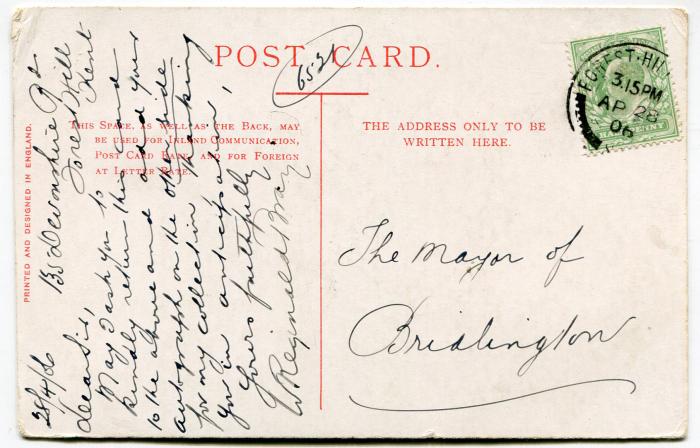 POST CARD.
6521
FOREST-HILL
3.15PM
AP 28
06
THIS SPACE, AS WELL AS THE BACK, MAY
BE USED FOR INLAND COMMUNICATION,
POST CARD RATE, AND FOR FOREIGN
AT LETTER RATE.
THE ADDRESS ONLY TO BE
WRITTEN HERE.
PRINTED AND DESIGNED IN ENGLAND.
135 Devonshire Rd
Forest Hill
Kent
28/4/06
Dear Sir,
May I ask you to
kindly return this card
to the above and add your
autograph on the other side
for my collection. Thanking
you in anticipation,
Yours faithfully
W. Reginald Bray
The Mayor of
Bridlington